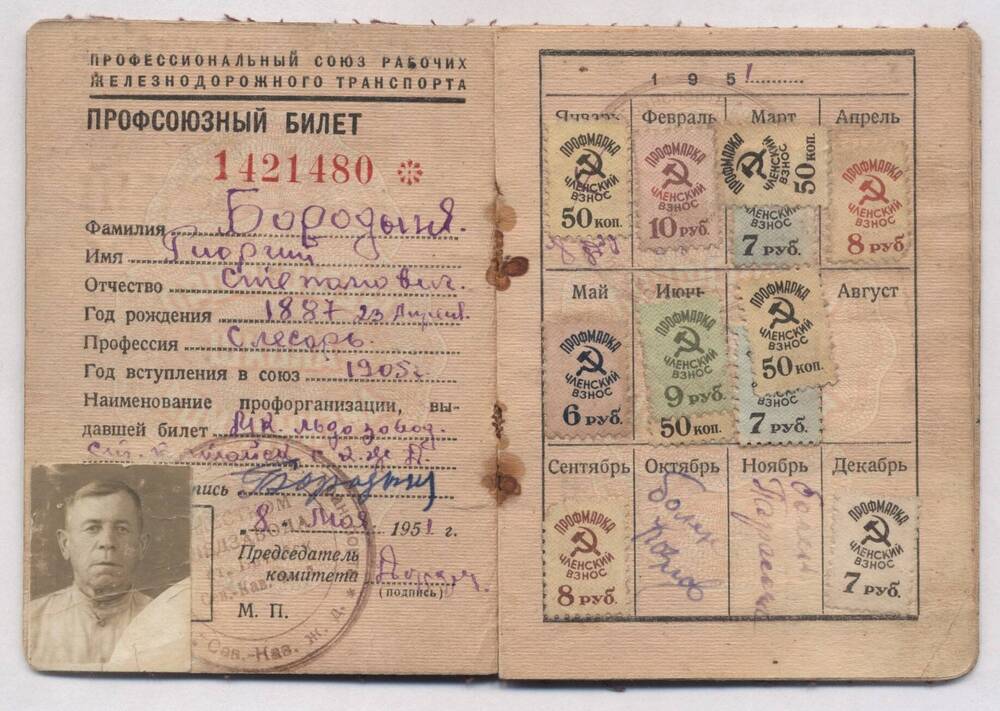 ПРОФЕССИОНАЛЬНЫЙ СОЮЗ РАБОЧИХ
ЖЕЛЕЗНОДОРОЖНОГО ТРАНСПОРТА
ПРОФСОЮЗНЫЙ БИЛЕТ
1421480
Фамилия Бородыня.
Имя Гиоргий
Отчество Степанович.
Год рождения 1887 23 Апреля.
Профессия Слесарь.
Год вступления в союз 1905г
Наименование профорганизации, вы-
давшей билет МК. льдозавод.
пись
8 Мая 1951 г.
Председатель
комитета
(подпись)
М. П.
Сев.-Кав. ж. д.
1951
Январь Февраль Март Апрель
ПРОФМАРКА ЧЛЕНСКИЙ ВЗНОС 50 коп.
ПРОФМАРКА ЧЛЕНСКИЙ ВЗНОС 10 руб.
ПРОФМАРКА ЧЛЕНСКИЙ ВЗНОС 50 коп.
ЧЛЕНСКИЙ ВЗНОС 7 руб.
ПРОФМАРКА ЧЛЕНСКИЙ ВЗНОС 8 руб.
Май Июнь Август
ПРОФМАРКА ЧЛЕНСКИЙ ВЗНОС 6 руб.
ПРОФМАРКА ЧЛЕНСКИЙ ВЗНОС 9 руб.
50 коп.
ПРОФМАРКА ЧЛЕНСКИЙ ВЗНОС 50 коп.
ВЗНОС 7 руб.
Сентябрь Октябрь Ноябрь Декабрь
ПРОФМАРКА ЧЛЕНСКИЙ ВЗНОС 8 руб.
ПРОФМАРКА ЧЛЕНСКИЙ ВЗНОС 7 руб.